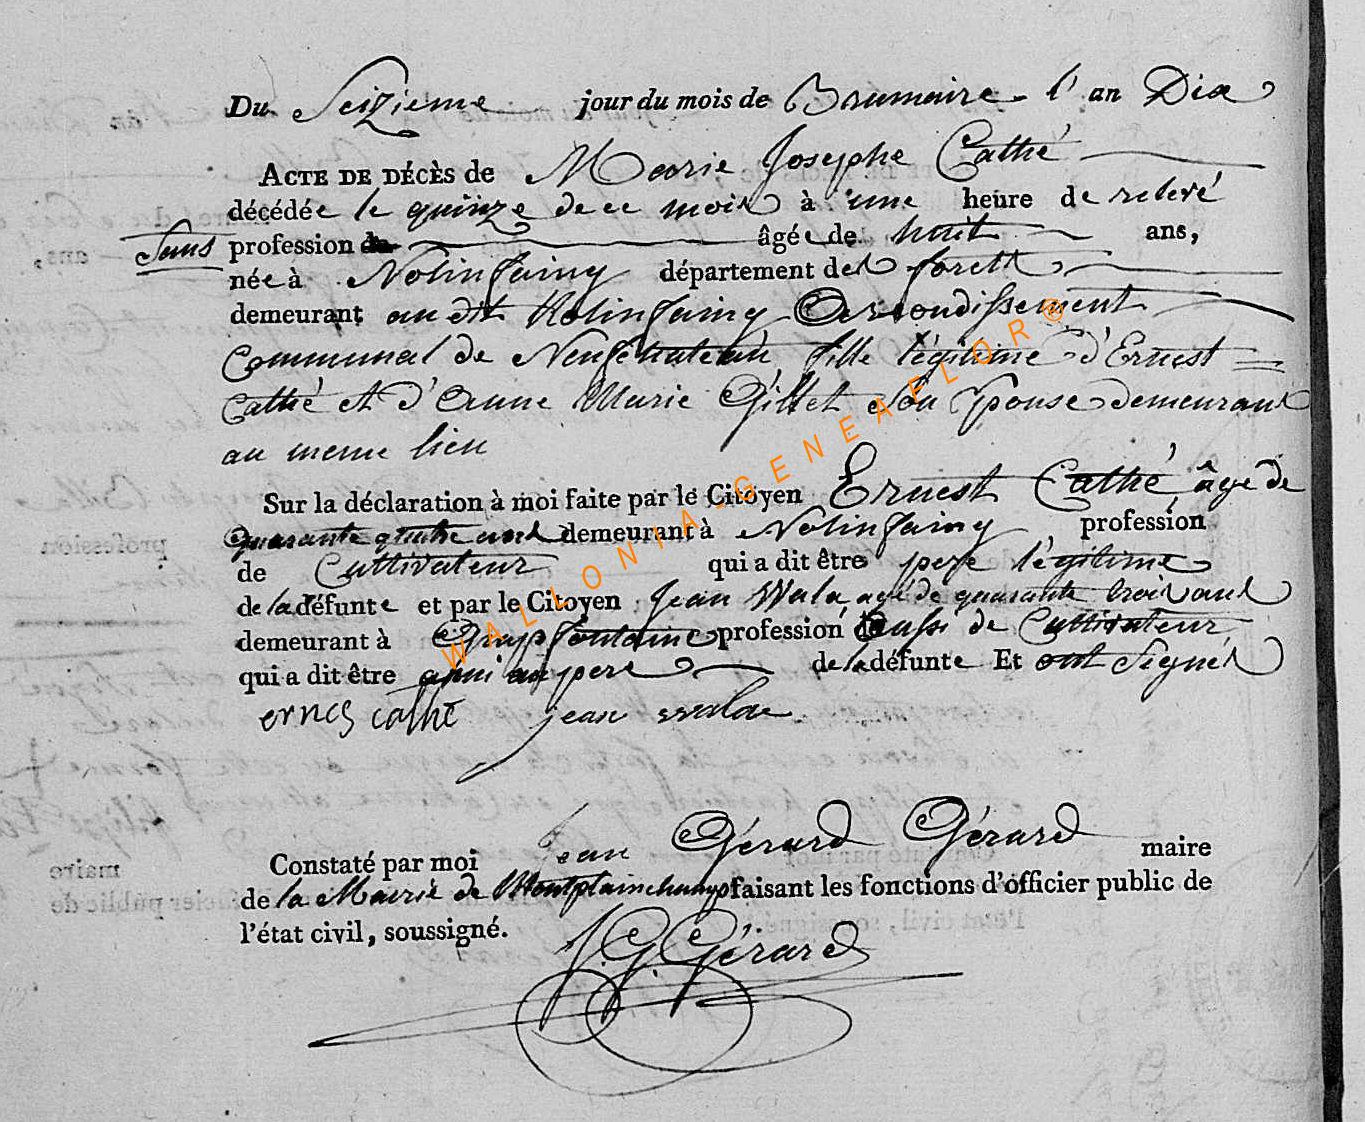 Du Seizieme jour du mois de Brumaire l'an Dix
ACTE DE DÉCÈS de Marie Josephe Cathé
décédée le quinze de ce mois à une heure de relevé
Sans profession âgée de huit ans,
née à Nolinfaing département des forets
demeurant au dit Nolinfaing Arrondissement
Communal de Neufchateau fille légitime d'Ernest
Cathé et d'Anne Marie Gillet son Epouse demeurant
au meme lieu
Sur la déclaration à moi faite par le Citoyen Ernest Cathé âgé de
quarante quatre ans demeurant à Nolinfaing profession
de Cultivateur qui a dit être pere légitime
de la défunte et par le Citoyen Jean Wala agé de quarante trois ans
demeurant à Grapfontaine profession aussi de Cultivateur
qui a dit être ami au pere de la défunte Et ont Signés
ernes cathé jean walae
Constaté par moi Jean Gérard Gérard maire
de la Mairie de Montplainchamps faisant les fonctions d'officier public de
l'état civil, soussigné.
J. G. Gérard
WALLONIA-GENEAFLOR®